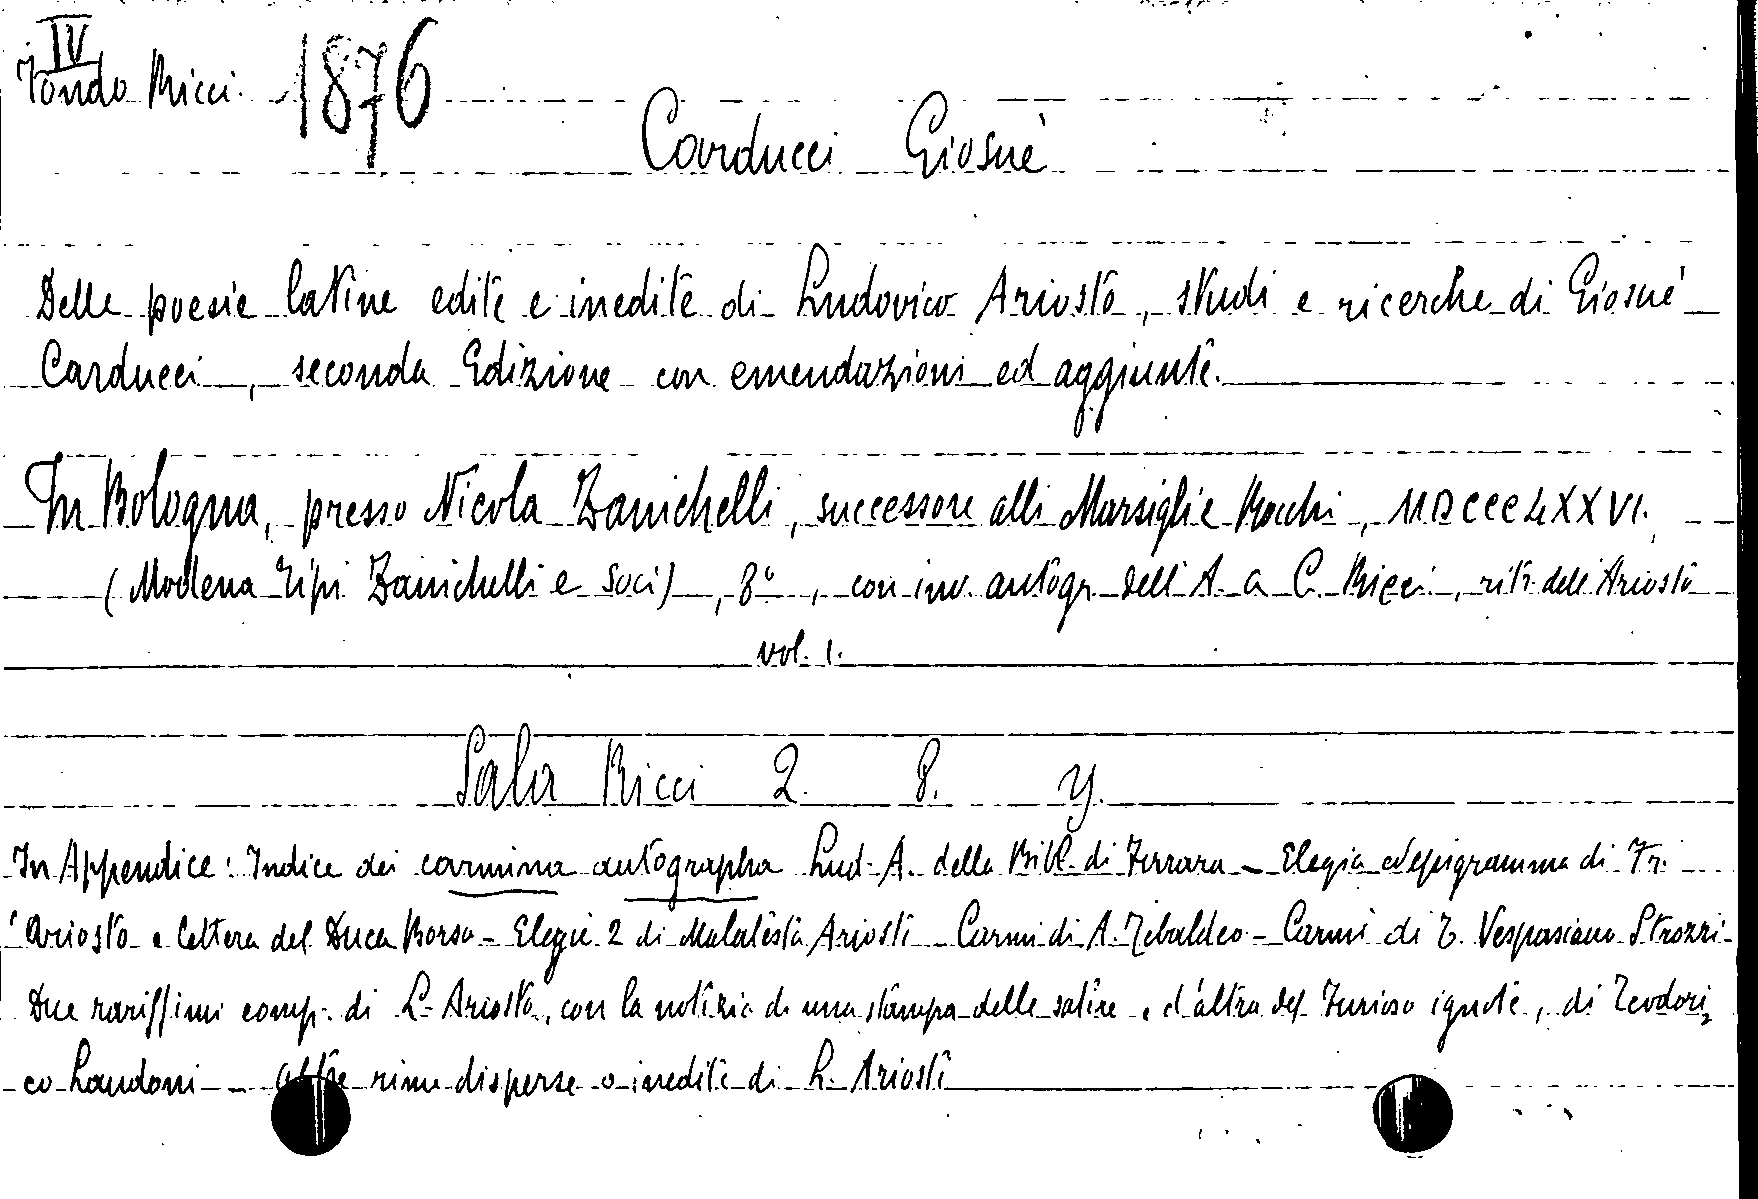 IV
Fondo Ricci. 1876
Carducci Giosuè
Delle poesie latine edite e inedite di Ludovico Ariosto, studi e ricerche di Giosuè
Carducci, seconda Edizione con emendazioni ed aggiunte.
In Bologna, presso Nicola Zanichelli, successore alli Marsigli e Rocchi, MDCCCLXXVI.
(Modena Tipi Zanichelli e Soci), 8°, con inv. autogr. dell'A. a C. Ricci, ritr. dell'Ariosto
vol. 1.
Sala Ricci 2. 8. y.
In Appendice: Indice dei carmina autographa Lud. A. della Bibl. di Ferrara - Elegia ed epigramma di Fr.
Ariosto e lettera del Duca Borso - Elegie 2 di Malatesta Ariosti - Carmi di A. Tebaldeo - Carmi di T. Vespasiano Strozzi -
Due rarissimi comp. di L. Ariosto, con la notizia di una stampa delle satire e d'altra del Furioso ignote, di Teodori,
co Landoni - altre rime disperse o inedite di L. Ariosti